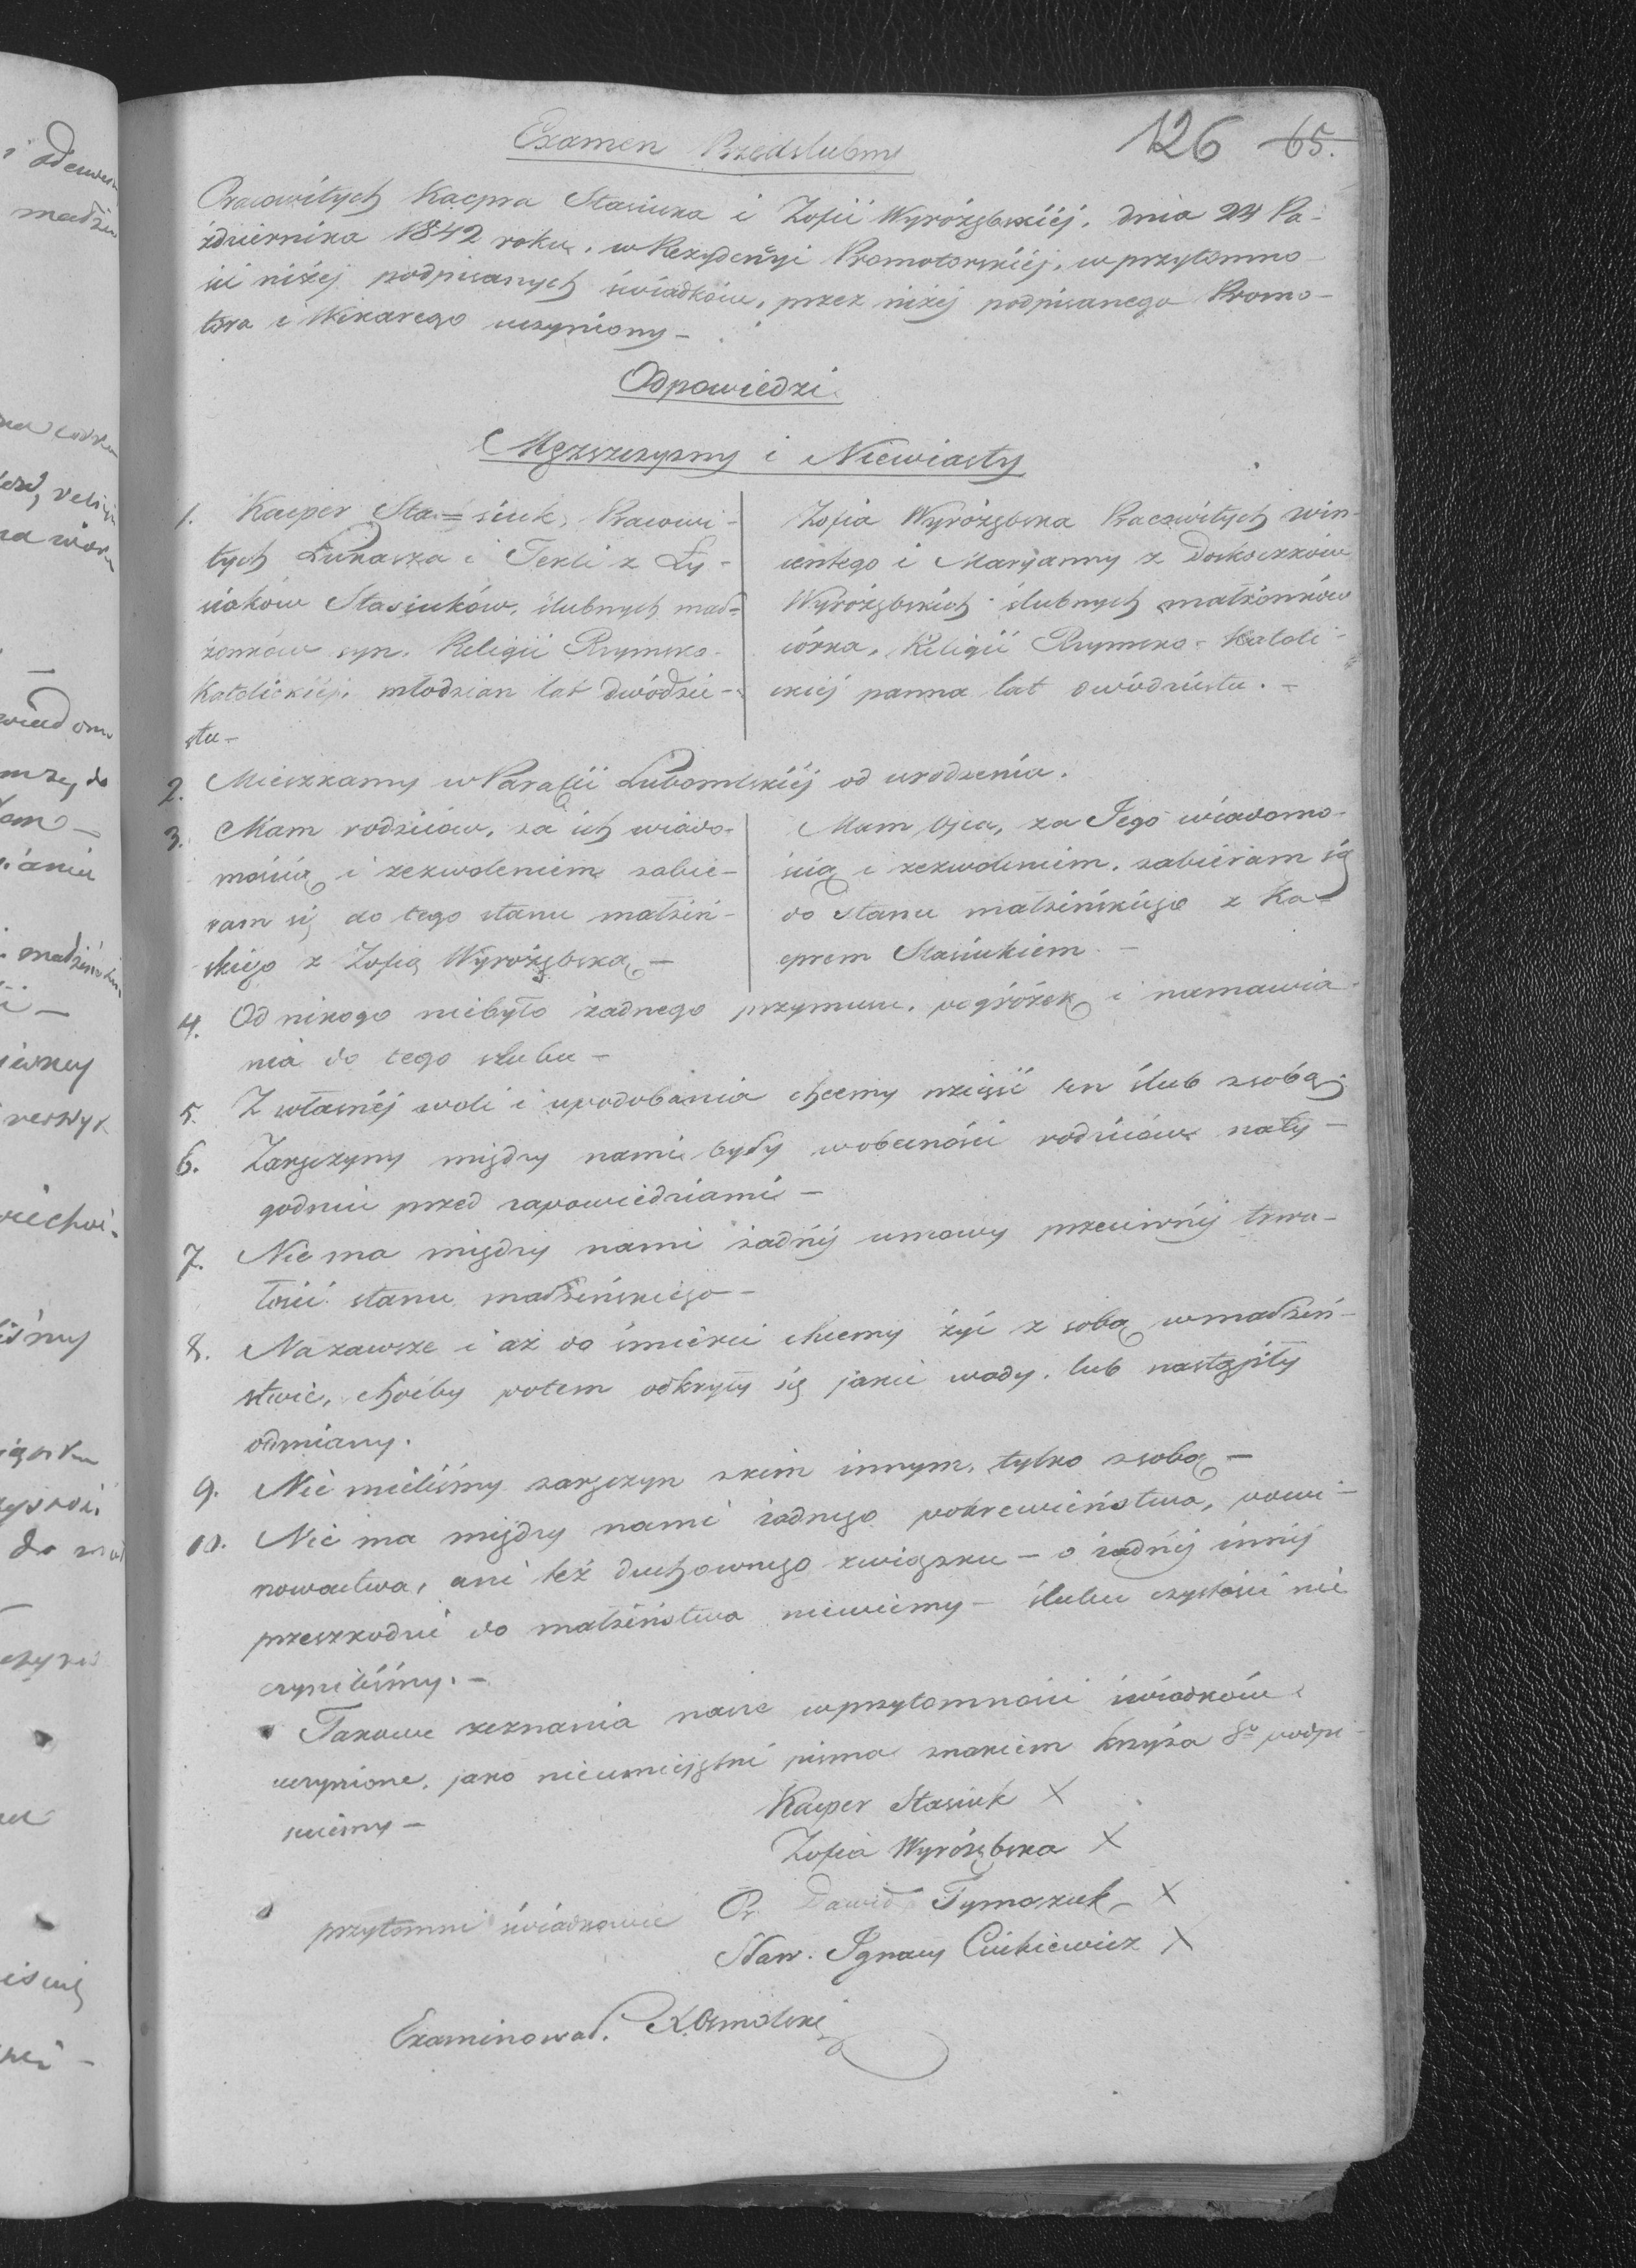 126 65.
Examen Przedślubny
Pracowitych Kacpra Stasiuka i Zofii Wyrózębskiéj, dnia 24 Pa-
ździernika 1842 roku, w Rezydencyi Promotorskiéj, w przytomno-
ści niżéj podpisanych świadków, przez niżéj podpisanego Promo-
tora i Wikarego uczyniony -
Odpowiedzi
Męzszczyzny i Niewiasty
1. Kacper Sta=siuk, Pracowi-
tych Łukasza i Tekli z Ły-
siaków Stasiuków, ślubnych mał-
żonków syn, Religii Rzymsko-
Katolickiéj, młodzian lat dwódzie-
stu -
Zofia Wyrózębska Pracowitych Win-
centego i Maryanny z
Wyrózębskich ślubnych małżonków
córka, Religii Rzymsko-Katoli-
ckiéj panna lat dwódziestu. -
2. Mieszkamy w Parafii Lubomlskiéj od urodzenia.
3. Mam rodziców, za ich wiado-
mością i zezwoleniem zabie-
ram się do tego stanu małżeń-
skiego z Zofią Wyrózębską -
Mam Ojca, za Jego wiadomo-
ścią i zezwoleniem, zabieram się
do stanu małżeńskiego z Ka-
cprem Stasiukiem -
4. Od nikogo niebyło żadnego przymusu, pogróżek i namawia-
nia do tego ślubu -
5. Z własnéj woli i upodobania chcemy wziąść ten ślub z sobą.
6. Zaręczyny między nami były w obecności rodziców na ty-
godniu przed zapowiedziami -
7. Nie ma między nami żadnéj umowy przeciwnéj trwa-
łości stanu małżeńskiego -
8. Na zawsze i aż do śmierci chcemy żyć z sobą w małżeń-
stwie, choćby potem odkryły się jakie wady, lub nastąpiły
odmiany.
9. Nie mieliśmy zaręczyn z kim innym, tylko z sobą -
10. Nie ma między nami żadnego pokrewieństwa, powi-
nowactwa, ani też duchownego związku - o żadnéj innéj
przeszkodzie do małżeństwa niewiemy - ślubu czystości nie
czyniliśmy. -
Takowe zeznania nasze w przytomności świadków
uczynione, jako nieumiejętni pisma znakiem krzyża Sgo podpi-
sujemy -
Kacper Stasiuk X
Zofia Wyrózębska X
przytomni świadkowie Pr. Dawid Tymoszuk X
Sław. Ignacy Cichiewicz X
Examinował.